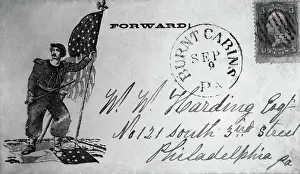 FORWARD!
BURNT CABINS
SEP
9
PA
W. W. Harding Esqr
No 121 South 3rd Street
Philadelphia
Pa